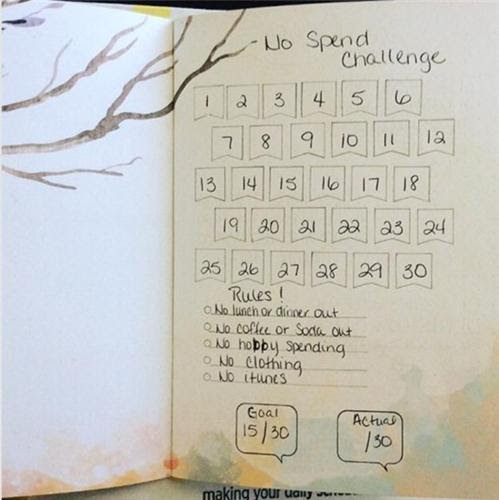 No Spend
Challenge
1 2 3 4 5 6
7 8 9 10 11 12
13 14 15 16 17 18
19 20 21 22 23 24
25 26 27 28 29 30
Rules!
No lunch or dinner out
No coffee or Soda out
No hobby spending
No clothing
No itunes
Goal
15/30
Actual
/30
making your daily